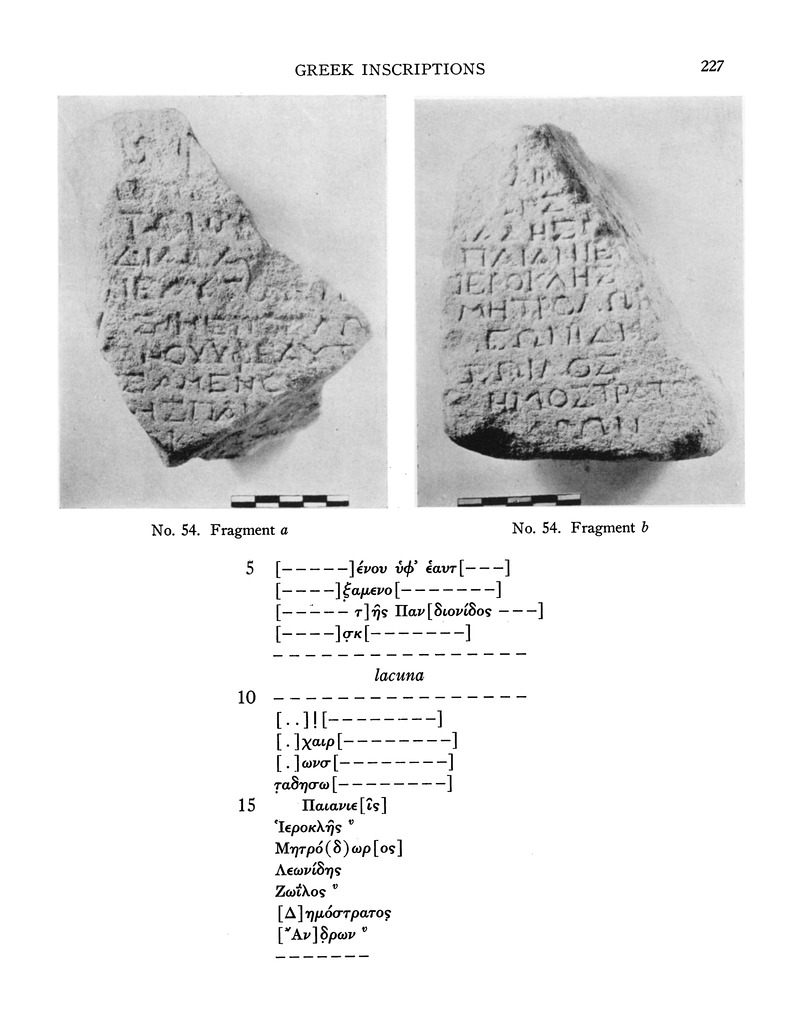 GREEK INSCRIPTIONS 227
No. 54. Fragment a
No. 54. Fragment b
5 [-----]ένου ὑφ’ ἑαυτ[---]
[----]ξ̣αμενο[-------]
[----- τ]ῆς Παν[διονίδος ---]
[----]σ̣κ[-------]
lacuna
10
[..]![--------]
[.]χαιρ[--------]
[.]ωνσ[--------]
τ̣αδησω[--------]
15 Παιανιε[ῖς]
Ἱεροκλῆς ᵛ
Μητρό(δ)ωρ[ος]
Λεωνίδης
Ζωΐλος ᵛ
[Δ]ημόστρατος̣
[Ἄν]δ̣ρων ᵛ